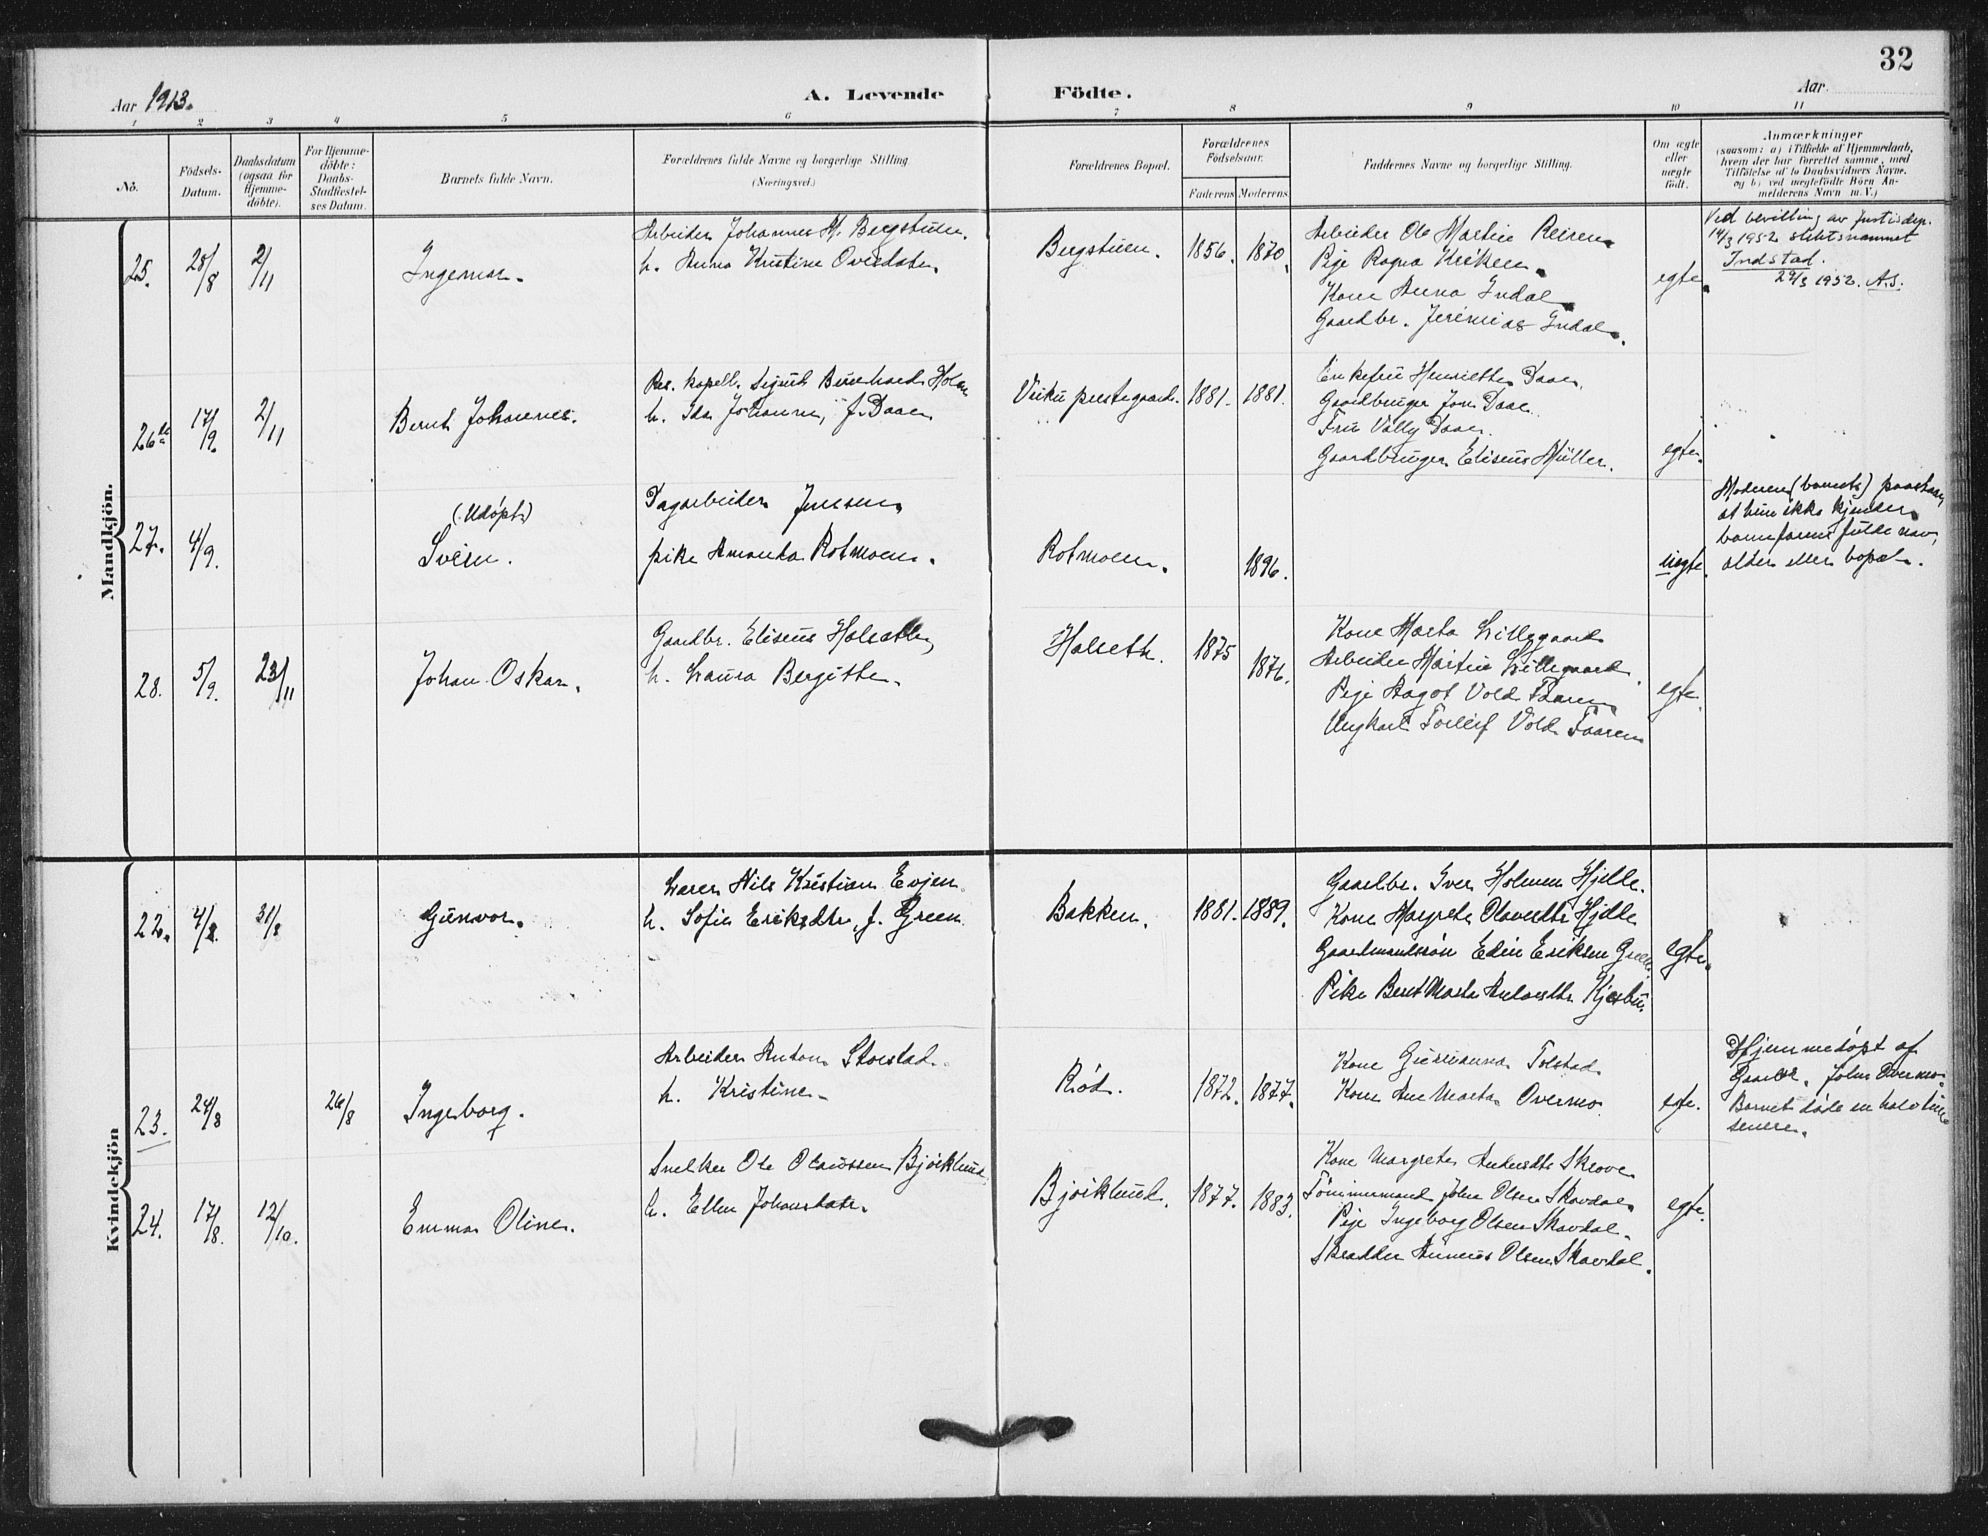 32
Aar 1913.
A. Levende Födte.
Aar
1 2 3 4 5 6 7 8 9 10 11
No.
Födsels-
Datum.
Daabsdatum
(ogsaa for
Hjemme-
döbte).
For Hjemme-
döbte:
Daabs-
Stadfæstel-
ses Datum.
Barnets fulde Navn.
Forældrenes fulde Navne og borgerlige Stilling
(Næringsvei.)
Forældrenes Bopæl.
Forældrenes
Födselsaar.
Faderens Moderens
Faddernes Navne og borgerlige Stilling.
Om ægte
eller
uægte
födt.
Anmærkninger
(saasom: a) i Tilfælde af Hjemmedaab,
hvem der har forrettet samme, med
Tilföielse af to Daabsvidners Navne,
og b) ved uægtefödte Börn An-
melderens Navn m. V.)
Mandkjön.
25.
25/8
2/11
Ingemar.
Arbeider Johannes M. Bergstuen.
h. Anna Kristine Oversdatr.
Bergstuen.
1856.
1870.
Arbeider Ole Martin
Pige Ragna
Kone Anna Indal
Gaardbr. Jeremias Indal.
egte.
Ved bevilling av Justisdep.
14/3 1952 slektsnamnet
Indstad.
29/3 1952. A.S.
26
17/9.
2/11
Bernt Johannes.
Res. kapell. Sigurd Bernhard Holm
h. Ida Johanne, f. Daae
prestegaard.
1881.
1881.
Enkefru Henriette Daae.
Gaardbruger Jon Daae
Fru Vally Daae.
Gaardbruger Eliseus Müller.
egte.
27.
4/9.
(Udöpt)
Svein.
Dagarbeider Jensen
pike Amanda Rotmoen.
Rotmoen.
1896.
uegte.
Moderen (barnets) paastaar
at hun ikke kjender
barnefarens fulde navn,
alder eller bopæl.
28.
5/9.
23/11
Johan Oskar.
Gaardbr. Eliseus Halseth
h. Laura Bergitte.
Halseth.
1875
1876.
Kone Marta Lillegaard
Arbeider Martin Lillegaard.
Pige Aagot Vold Faaren
Ungkarl Torleif Vold Faaren
egte.
Kvindekjön
22.
4/8.
31/8
Gunvor.
Lærer Nils Kristian Evjen.
h. Sofie Eriksdtr. f. Green
Bakken.
1881.
1889.
Gaardbr. Iver Holmen Hjelle.
Kone Margrete Olavsdtr Hjelle
Gaardmandssön Edin Eriksen
Pike Beret Marta Antonsdtr Kjesbu.
egte.
23.
24/8
26/8
Ingeborg.
Arbeider Anton Storstad.
h. Kristine.
Röd.
1872.
1877.
Kone Tolstad
Kone Ane Marta Overmo.
egte.
Hjemmedöpt af
Gaardbr. John Overmo.
Barnet döde en halv time
senere.
24.
17/8.
12/10.
Emma Oline.
Snekker Ole Olausen Björklund
h. Ellen Johansdatr.
Björklund.
1877.
1883.
Kone Margrete Skrove
Tömmermand John Olsen Skavdal.
Pige Ingeborg Olsen Skavdal.
Skrædder Olsen Skavdal.
egte.